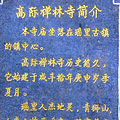 高际禅林寺简介
本寺庙坐落在瑶里古镇
的镇中心。
高际禅林寺历史悠久，
它始建于咸丰拾年庚申岁孟
夏月。
瑶里人杰地灵，青狮山，